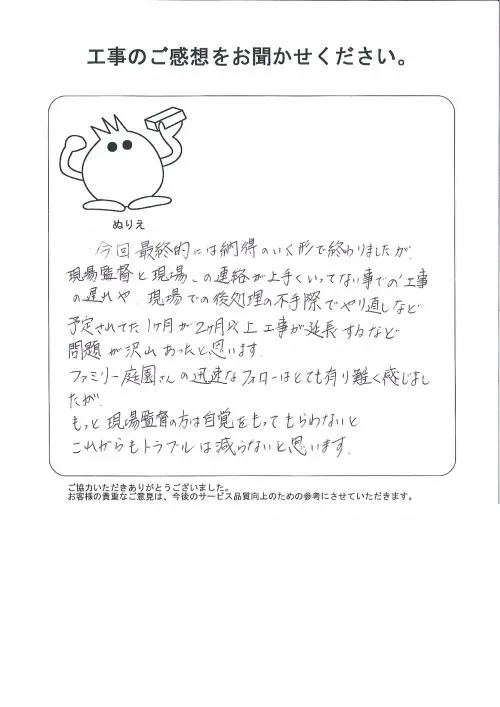 工事のご感想をお聞かせください。
ぬりえ
今回 最終的には納得のいく形で終わりましたが、
現場監督と現場への連絡が上手くいってない事での工事
の遅れや、現場での後処理の不手際でやり直しなど
予定されてた1ヶ月が2ヶ月以上工事が延長するなど
問題が沢山あったと思います。
ファミリー庭園さんの迅速なフォローはとても有り難く感じまし
たが、
もっと現場監督の方は自覚をもってもらわないと
これからもトラブルは減らないと思います。
ご協力いただきありがとうございました。
お客様の貴重なご意見は、今後のサービス品質向上のための参考にさせていただきます。